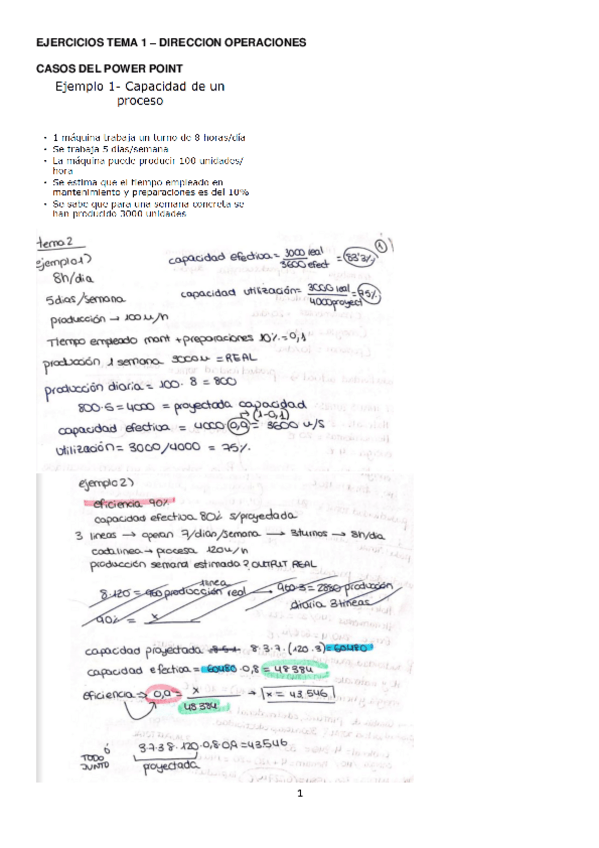 EJERCICIOS TEMA 1 – DIRECCION OPERACIONES
CASOS DEL POWER POINT
Ejemplo 1- Capacidad de un
proceso
• 1 máquina trabaja un turno de 8 horas/día
• Se trabaja 5 días/semana
• La máquina puede producir 100 unidades/
hora
• Se estima que el tiempo empleado en
mantenimiento y preparaciones es del 10%
• Se sabe que para una semana concreta se
han producido 3000 unidades
tema 2
ejemplo 1)
capacidad efectiva = 3000 real / 3600 efect = 83'3% ①
8h/dia
capacidad utilización = 3000 real / 4000 proyect = 75%
5dias/semana
producción → 100u/h
Tiempo empleado mant + preparaciones 10% = 0,1
producción 1 semana 3000u = REAL
producción diaria = 100 · 8 = 800
800·5 = 4000 = proyectada capacidad
(1-0,1)
capacidad efectiva = 4000 · 0,9 = 3600 u/s
Utilización = 3000/4000 = 75%
ejemplo 2)
eficiencia 90%
capacidad efectiva 80% s/proyectada
3 lineas → operan 7/dias/semana → 3turnos → 8h/dia
cada linea → procesa 120u/h
producción semana estimado? OUTPUT REAL
8·120 = 960 producción real → 960·3 = 2880 producción
1linea
diaria 3lineas
90% = x
capacidad proyectada 8·3·7·(120·3) = 60480
capacidad efectiva = 60480·0,8 = 48384
eficiencia → 0,9 = x / 48384 → x = 43.546
ó
TODO
JUNTO
3·7·3·8·120·0,8·0,9 = 43546
proyectada
1